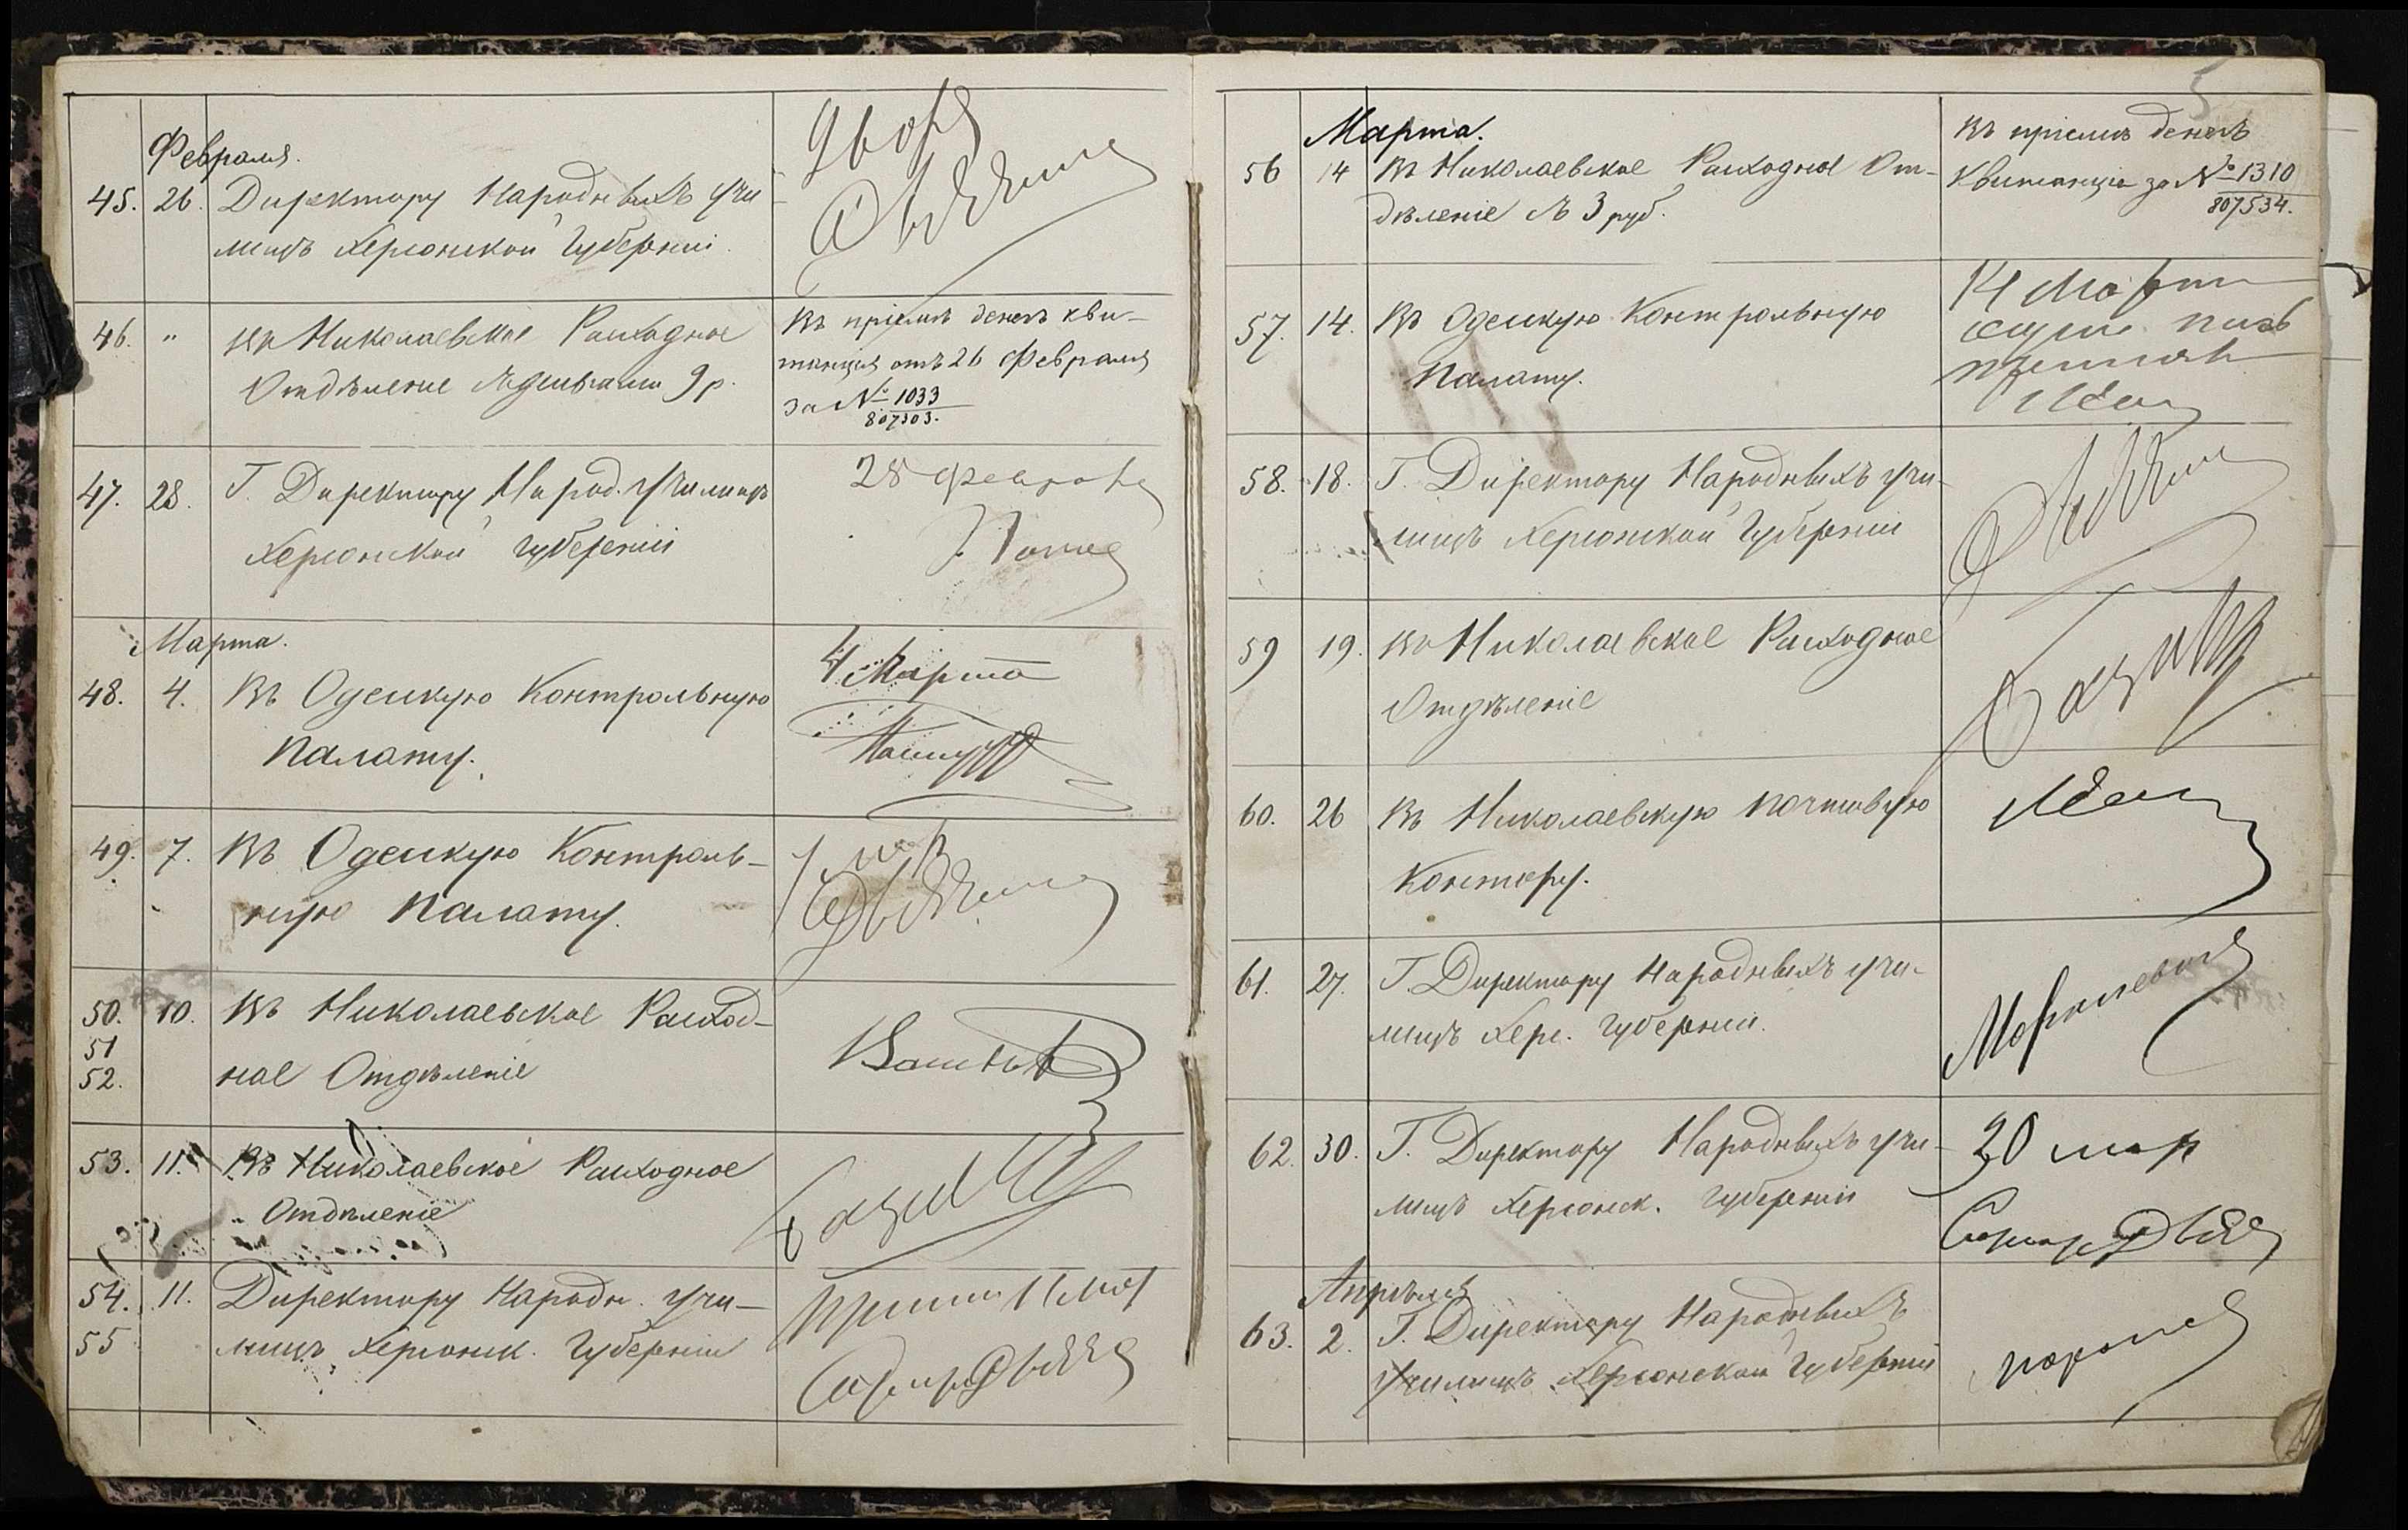 5
Февраля.
45. 26. Директору Народныхъ Учи
лищъ Херсонской Губерніи.
46. " въ Николаевское Расходное
Отдѣленіе съ деньгами 9 р.
Въ пріемѣ денегъ кви-
танція отъ 26 Февраля
за № 1033
807303.
47. 28. Г. Директору Народ. Училищъ
Херсонской Губерніи
28 Февраля
Марта.
48. 4. Въ Одесскую Контрольную
Палату.
4 Марта
49. 7. Въ Одесскую Контроль-
ную Палату.
7 мар
50. 10. Въ Николаевское Расход-
51
ное Отдѣленіе
52.
53. 11. Въ Николаевское Расходное
Отдѣленіе
54. 11. Директору Народн. Учи-
55 лищъ Херсонск. Губерніи
Марта.
56 14 Въ Николаевское Расходное От-
дѣленіе съ 3 руб.
Въ пріемѣ денегъ
квитанція за № 1310
807534.
57. 14. Въ Одесскую Контрольную
Палату.
14 Марта
58. 18. Г. Директору Народныхъ Учи-
лищъ Херсонской Губерніи
59 19. Въ Николаевское Расходное
Отдѣленіе
60. 26 Въ Николаевскую почтовую
Контору.
61. 27. Г. Директору Народныхъ Учи-
лищъ Херс. Губерніи.
62. 30. Г. Директору Народныхъ Учи-
лищъ Херсонск. Губерніи
30 мар
Апрѣля
63. 2. Г. Директору Народныхъ
Училищъ Херсонской Губерніи